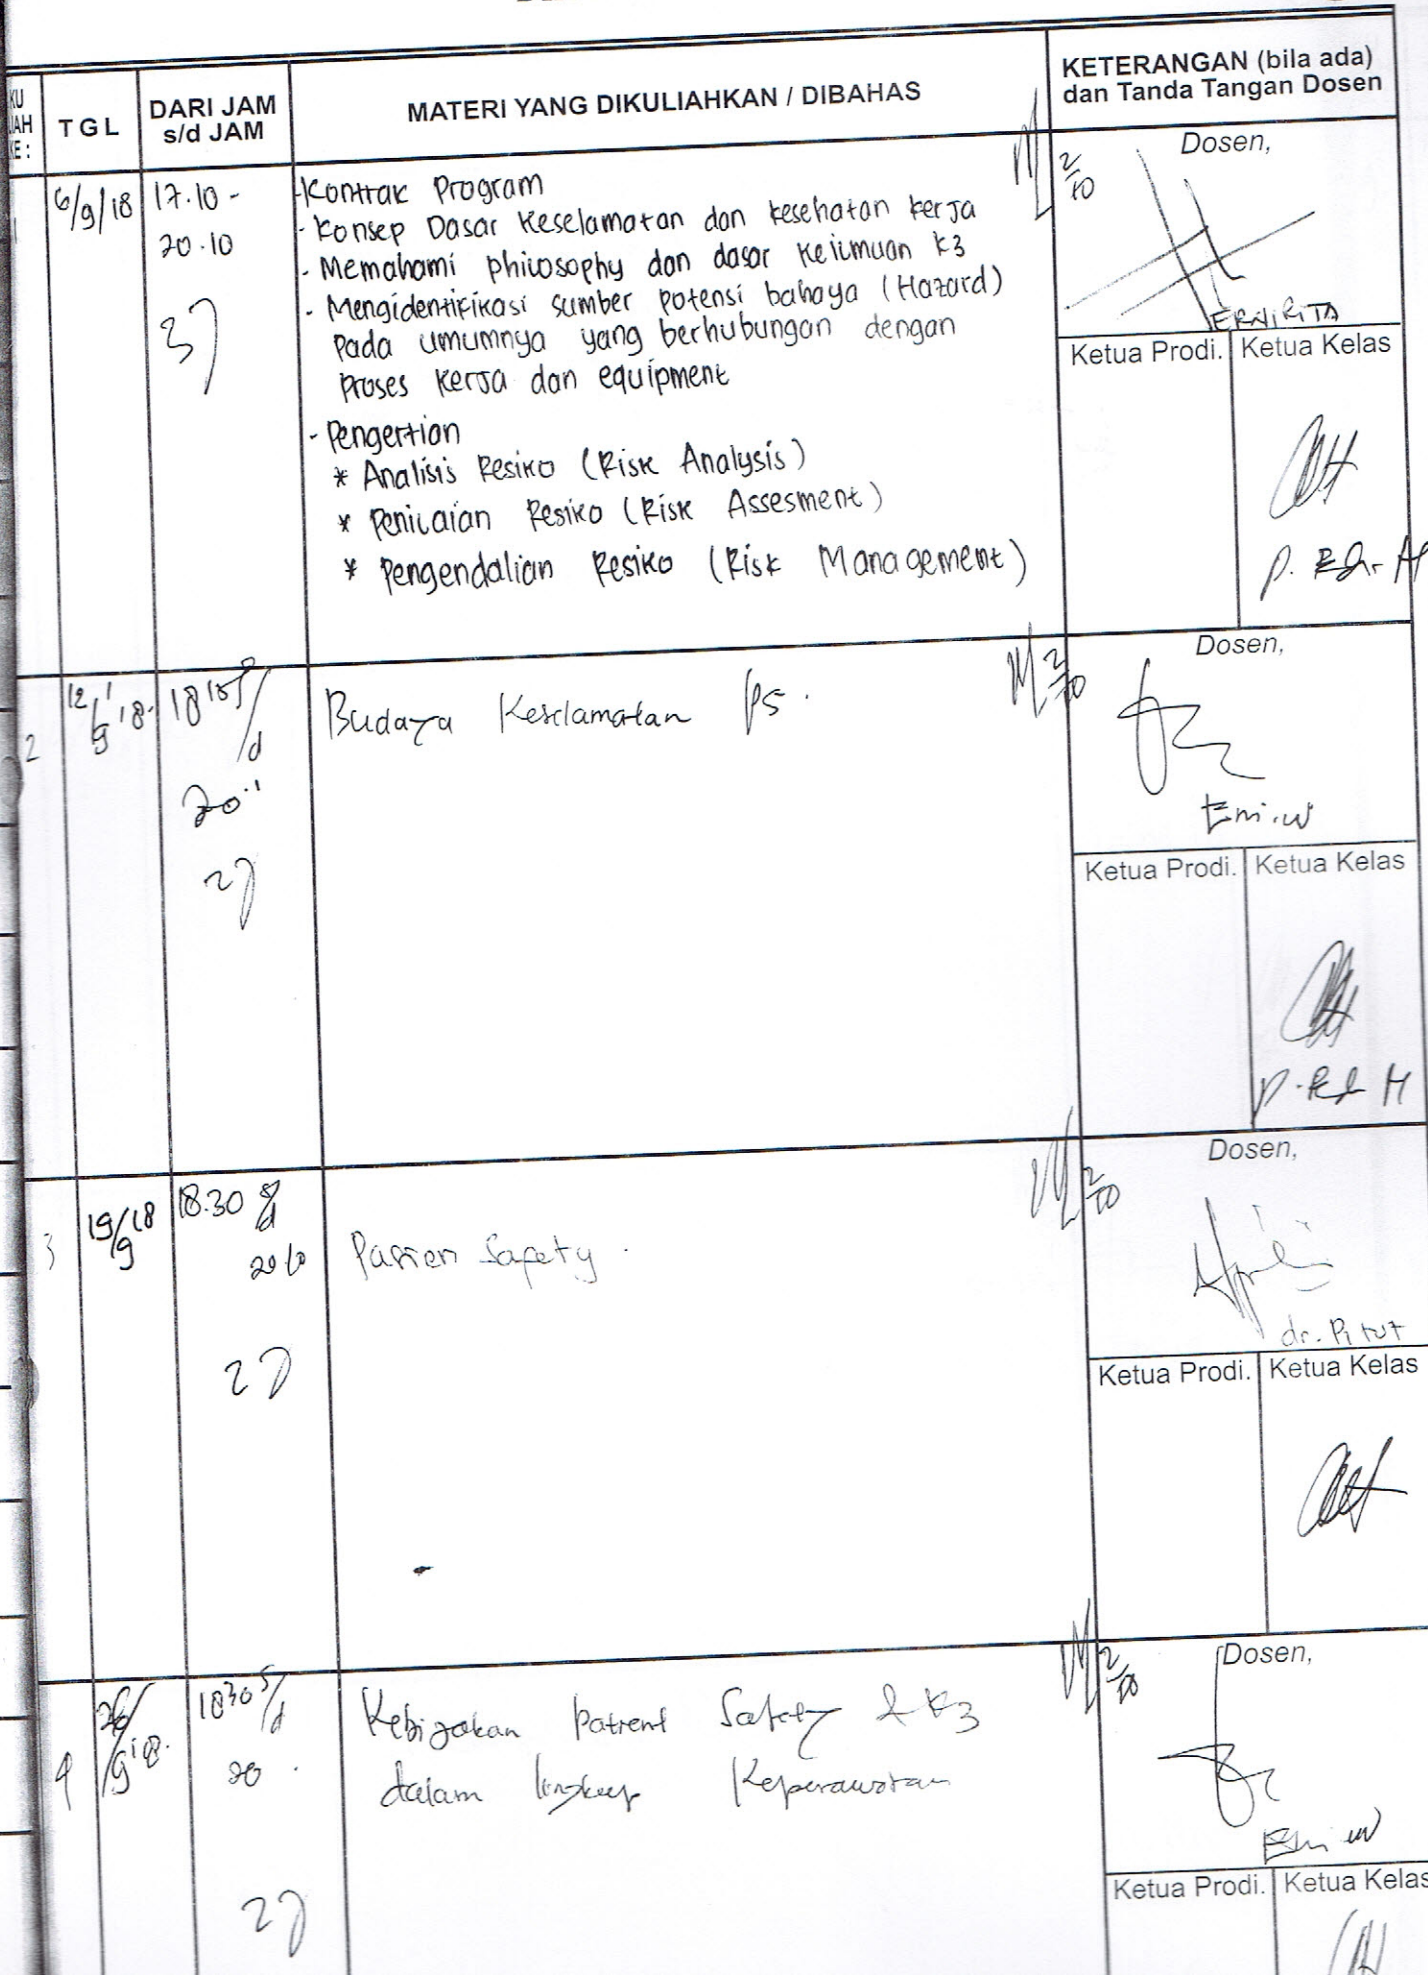 KU
JAH
KE :
T G L
DARI JAM
s/d JAM
MATERI YANG DIKULIAHKAN / DIBAHAS
KETERANGAN (bila ada)
dan Tanda Tangan Dosen
1
6/9/18
17.10 -
20.10
3J
- Kontrak Program
- Konsep Dasar Keselamatan dan kesehatan kerja
- Memahami philosophy dan dasar keilmuan k3
- Mengidentifikasi sumber potensi bahaya (Hazard)
pada umumnya yang berhubungan dengan
proses kerja dan equipment
- Pengertian
* Analisis Resiko (Risk Analysis)
* Penilaian Resiko (Risk Assesment)
* Pengendalian Resiko (Risk Management)
2/10
Dosen,
ERNIRITA
Ketua Prodi.
Ketua Kelas
2
12/9 '18.
18
s/d
20
2J
Budaya Keselamatan ps.
2/10
Dosen,
Eni.w
Ketua Prodi.
Ketua Kelas
3
19/9 18
18.30 s/d
20.10
2J
Pasien Safety.
2/10
Dosen,
dr. Pitut
Ketua Prodi.
Ketua Kelas
4
26/9 '18.
18 30 s/d
20
2J
Kebijakan Patient Safety & K3
dalam lingkup Keperawatan
2/10
Dosen,
Eni w
Ketua Prodi.
Ketua Kelas